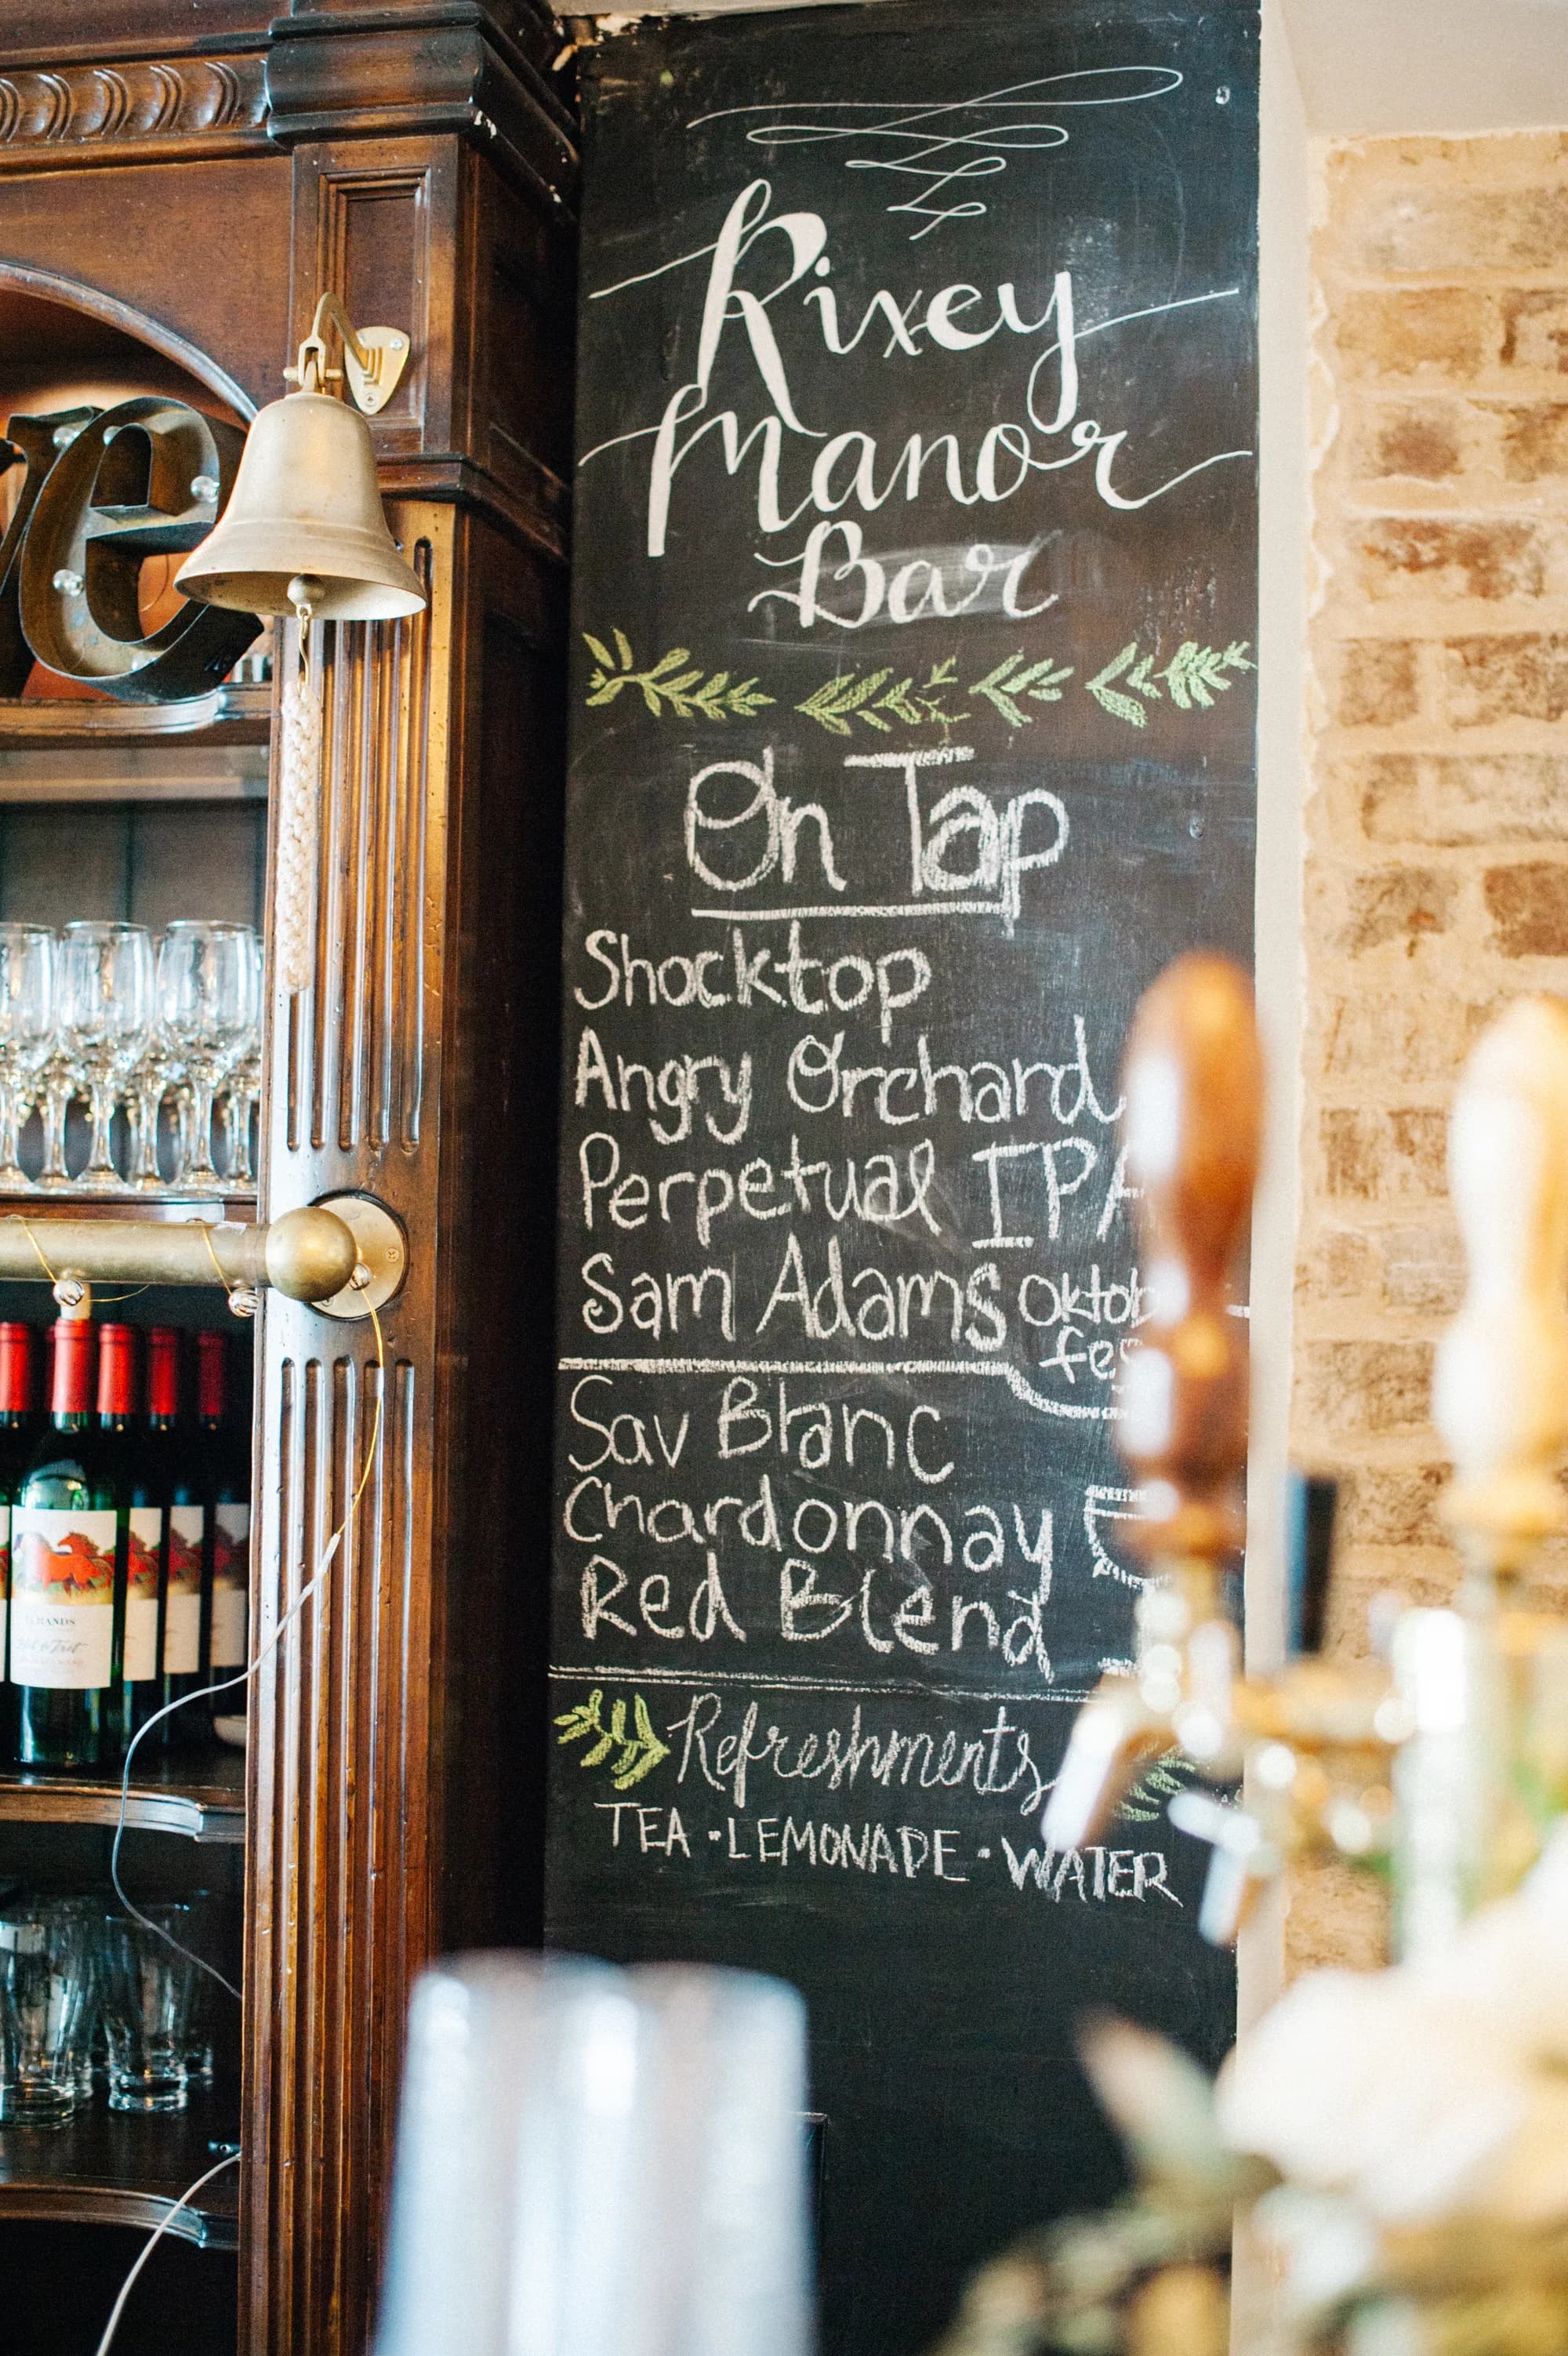 Rixey
Manor
Bar
On Tap
Shocktop
Angry Orchard
Perpetual IPA
Sam Adams Oktob
fes
Sav Blanc
Chardonnay
Red Blend
Refreshments
TEA • LEMONADE • WATER
ve